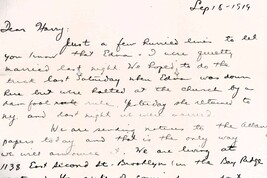 Sep 18-1919
Dear Harry:
Just a few hurried lines to let
you know that Edna & I were quietly
married last night. We hoped to do the
trick last Saturday when Edna was down
here but were halted at the church by a
damfool rule. Yesterday she returned to
ny and last night we were married
We are sending notices to the
papers today and that is the only way
we will announce it. We are living at
1138 East Second St. Brooklyn (in the Bay Ridge